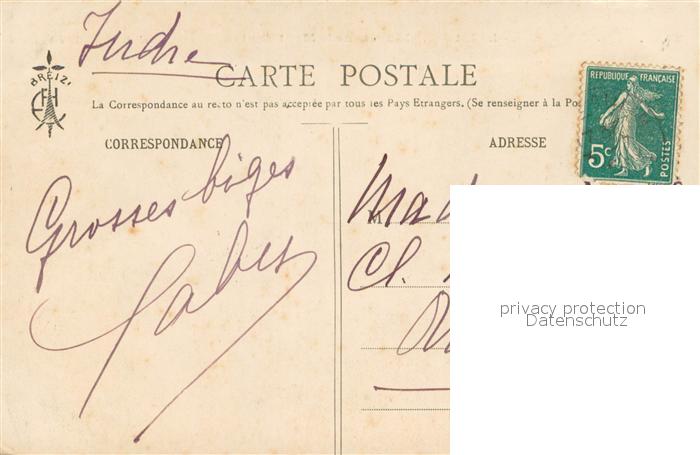 Indre
BREIZ'
CARTE POSTALE
La Correspondance au recto n'est pas acceptée par tous les Pays Etrangers. (Se renseigner à la Pos
CORRESPONDANCE
ADRESSE
RÉPUBLIQUE FRANÇAISE
5c
POSTES
Grosses biges
Mad
Cl.
privacy protection
Datenschutz